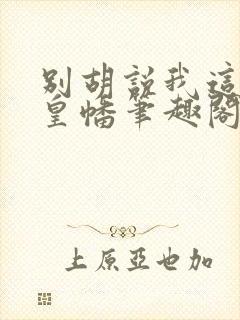 別胡說我這
皇幡筆趣閣
上原亞也加